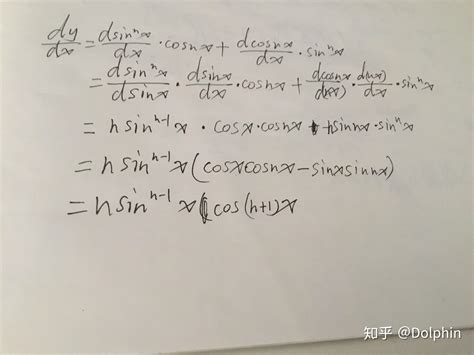 dy/dx = dsinⁿx/dx · cosnx + dcosnx/dx · sinⁿx
= dsinⁿx/dsinx · dsinx/dx · cosnx + dcosnx/d(nx) · d(nx)/dx · sinⁿx
= nsinⁿ⁻¹x · cosx · cosnx - nsinnx · sinⁿx
= nsinⁿ⁻¹x (cosxcosnx - sinxsinnx)
= nsinⁿ⁻¹x cos(n+1)x
知乎 @Dolphin